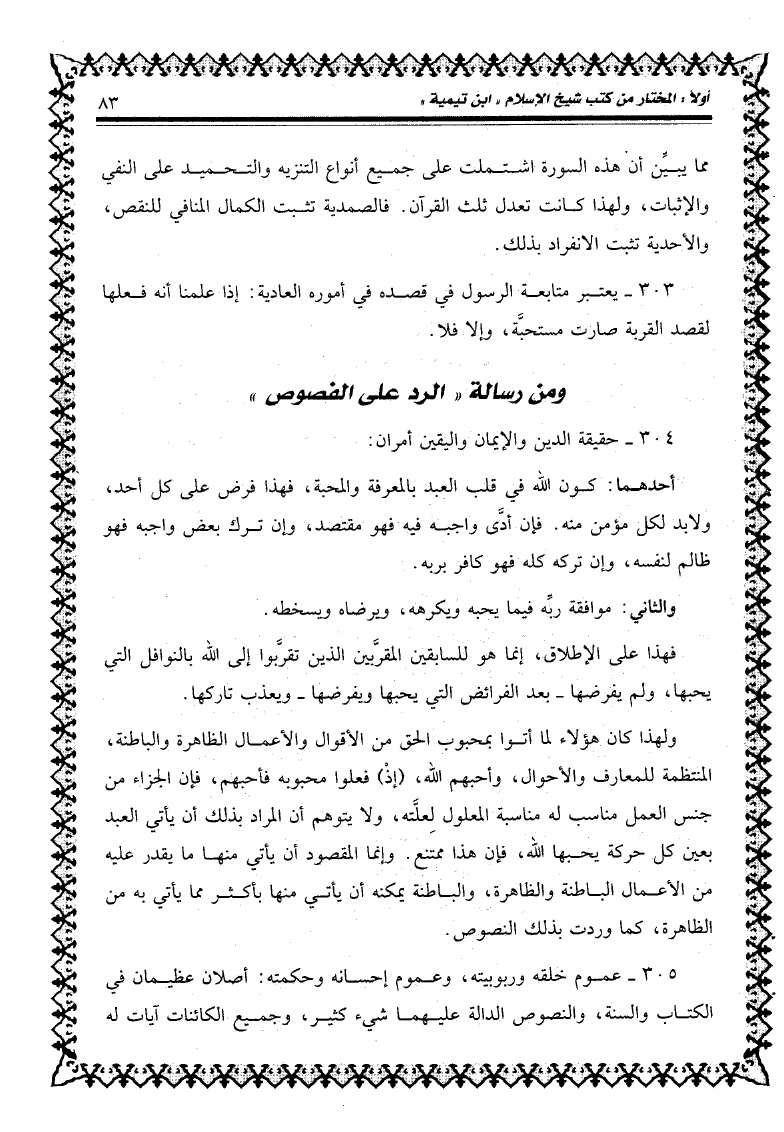 أولاً : المختار من كتب شيخ الإسلام « ابن تيمية » ٨٣
مما يبيِّن أن هذه السورة اشتملت على جميع أنواع التنزيه والتحميد على النفي
والإثبات، ولهذا كانت تعدل ثلث القرآن. فالصمدية تثبت الكمال المنافي للنقص،
والأحدية تثبت الانفراد بذلك.
٣٠٣ ـ يعتبر متابعة الرسول في قصده في أموره العادية: إذا علمنا أنه فعلها
لقصد القربة صارت مستحبَّة، وإلا فلا.
ومن رسالة « الرد على الفصوص »
٣٠٤ ـ حقيقة الدين والإيمان واليقين أمران:
أحدهما: كون الله في قلب العبد بالمعرفة والمحبة، فهذا فرض على كل أحد،
ولابد لكل مؤمن منه. فإن أدَّى واجبه فيه فهو مقتصد، وإن ترك بعض واجبه فهو
ظالم لنفسه، وإن تركه كله فهو كافر بربه.
والثاني: موافقة ربِّه فيما يحبه ويكرهه، ويرضاه ويسخطه.
فهذا على الإطلاق، إنما هو للسابقين المقرَّبين الذين تقرَّبوا إلى الله بالنوافل التي
يحبها، ولم يفرضها ـ بعد الفرائض التي يحبها ويفرضها ـ ويعذب تاركها.
ولهذا كان هؤلاء لما أتوا بمحبوب الحق من الأقوال والأعمال الظاهرة والباطنة،
المنتظمة للمعارف والأحوال، وأحبهم الله، (إذْ) فعلوا محبوبه فأحبهم، فإن الجزاء من
جنس العمل مناسب له مناسبة المعلول لعلَّته، ولا يتوهم أن المراد بذلك أن يأتي العبد
بعين كل حركة يحبها الله، فإن هذا ممتنع. وإنما المقصود أن يأتي منها ما يقدر عليه
من الأعمال الباطنة والظاهرة، والباطنة يمكنه أن يأتي منها بأكثر مما يأتي به من
الظاهرة، كما وردت بذلك النصوص.
٣٠٥ ـ عموم خلقه وربوبيته، وعموم إحسانه وحكمته: أصلان عظيمان في
الكتاب والسنة، والنصوص الدالة عليهما شيء كثير، وجميع الكائنات آيات له